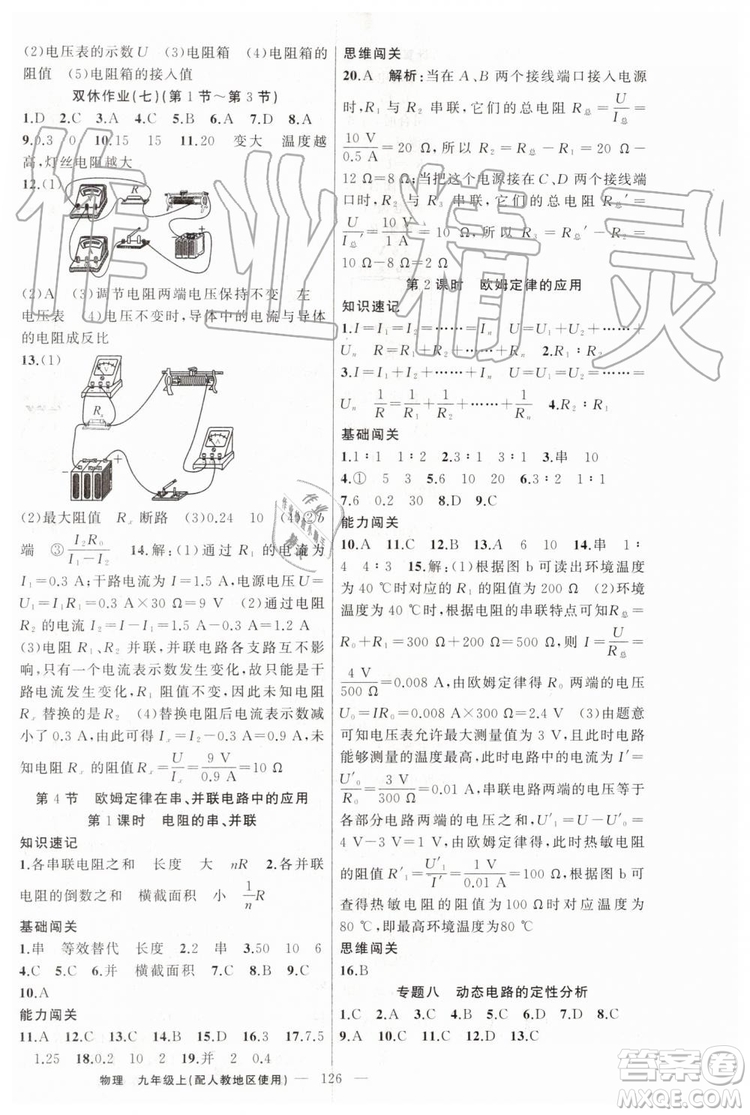 (2)电压表的示数U (3)电阻箱 (4)电阻箱的
阻值 (5)电阻箱的接入值
双休作业(七)(第1节～第3节)
1.D 2.C 3.A 4.C 5.B 6.C 7.D 8.A
9.0.3 0 10.15 15 11.20 变大 温度越
高,灯丝电阻越大
12.(1)
(2)A (3)调节电阻两端电压保持不变 左
电压表 (4)电压不变时,导体中的电流与导体
的电阻成反比
13.(1)
(2)最大阻值 Rₓ断路 (3)0.24 10 (4)②b
端 ③I₂R₀/(I₁－I₂) 14.解:(1)通过R₁的电流为
I₁＝0.3 A 干路电流为I＝1.5 A,电源电压为U＝
U₁＝I₁R₁＝0.3 A×30 Ω＝9 V (2)通过电阻
R₂的电流为I₂＝I－I₁＝1.5 A－0.3 A＝1.2 A
(3)电阻R₁、R₂并联,并联电路各支路互不影
响,只有一个电流表示数发生变化,则一定是干
路电流发生变化,R₁阻值不变,因此未知电阻
Rₓ替换的是R₂ (4)替换电阻后电流表示数减
小了0.3 A,则此时Iₓ＝I₂－0.3 A＝0.9 A
则未知电阻的阻值为Rₓ＝U/Iₓ＝9 V/0.9 A＝10 Ω
第4节 欧姆定律在串、并联电路中的应用
第1课时 电阻的串、并联
知识速记
1.各串联电阻之和 长度 大 nR 2.各并联
电阻的倒数之和 横截面积 小 1/n R
基础闯关
1.串 等效替代 长度 2.2 串 3.50 10 6
4.C 5.并 横截面积 6.C 7.D 8.C 9.C
10.A
能力闯关
11.A 12.A 13.A 14.D 15.D 16.C 17.7.5
1.25 18.0.2 并 20 19.4 2 0.4
物理 九年级上(配人教地区使用) — 126 —
思维闯关
20.A 解析:当在A、B两个接线端口接入电源
时,R₁与R₂串联,它们的总电阻R总＝U/I＝
10 V/0.5 A＝20 Ω,所以R₂＝R总－R₁＝20 Ω－
12 Ω＝8 Ω;当把这个电源接在C、D两个接线
端口时,R₂与R₃串联,它们的总电阻R总′＝
U/I′＝10 V/1 A＝10 Ω,所以R₃＝R总′－R₂＝
10 Ω－8 Ω＝2 Ω。
第2课时 欧姆定律的应用
知识速记
1.I＝I₁＝I₂＝……＝Iₙ U＝U₁＋U₂＋……＋
Uₙ R＝R₁＋R₂＋……＋Rₙ 2.U₁/U₂＝R₁/R₂
3.I＝I₁＋I₂＋……＋Iₙ U＝U₁＝U₂＝……＝
Uₙ 1/R＝1/R₁＋1/R₂＋……＋1/Rₙ 4.I₁/I₂＝R₂/R₁
基础闯关
1.1∶1 1∶2 1∶3 2.C 3.串 10
4.① 5 3 5.2 6 0.2 6.C
7.6 0.2 30 8.D 9.C
能力闯关
10.A 11.C 12.B 13.A 14.串 1∶
4 4∶3 15.解:(1)根据图b可读出环境温度
为40 ℃时对应的电阻为300 Ω (2)环境
温度为40 ℃时,根据电阻的串联特点可知R总
＝R₀＋R₁＝300 Ω＋200 Ω＝500 Ω,I＝U/R总＝
4 V/500 Ω＝0.008 A,由欧姆定律得R₀两端的电压
U₀＝IR₀＝0.008 A×300 Ω＝2.4 V (3)由题意
可知电压表允许的最大电压值为3 V时,电路
能够测量的温度最高,此时电路中的电流I′＝
U′₀/R₀＝3 V/300 Ω＝0.01 A,串联电路两端的电压等于
各部分电路两端电压之和,U′₁＝U－U′₀＝
4 V－3 V＝1 V,根据欧姆定律得此时热敏电
阻的电阻R′₁＝U′₁/I′＝1 V/0.01 A＝100 Ω,由图可以
查得热敏电阻的阻值为100 Ω时对应的温度为
80 ℃,即最高环境温度为80 ℃
思维闯关
16.B
专题八 动态电路的定性分析
1.C 2.C 3.C 4.A 5.B 6.C 7.D 8.C
9.A 10.A 11.D 12.D 13.C
作业精灵
答案圈
MXQE.COM